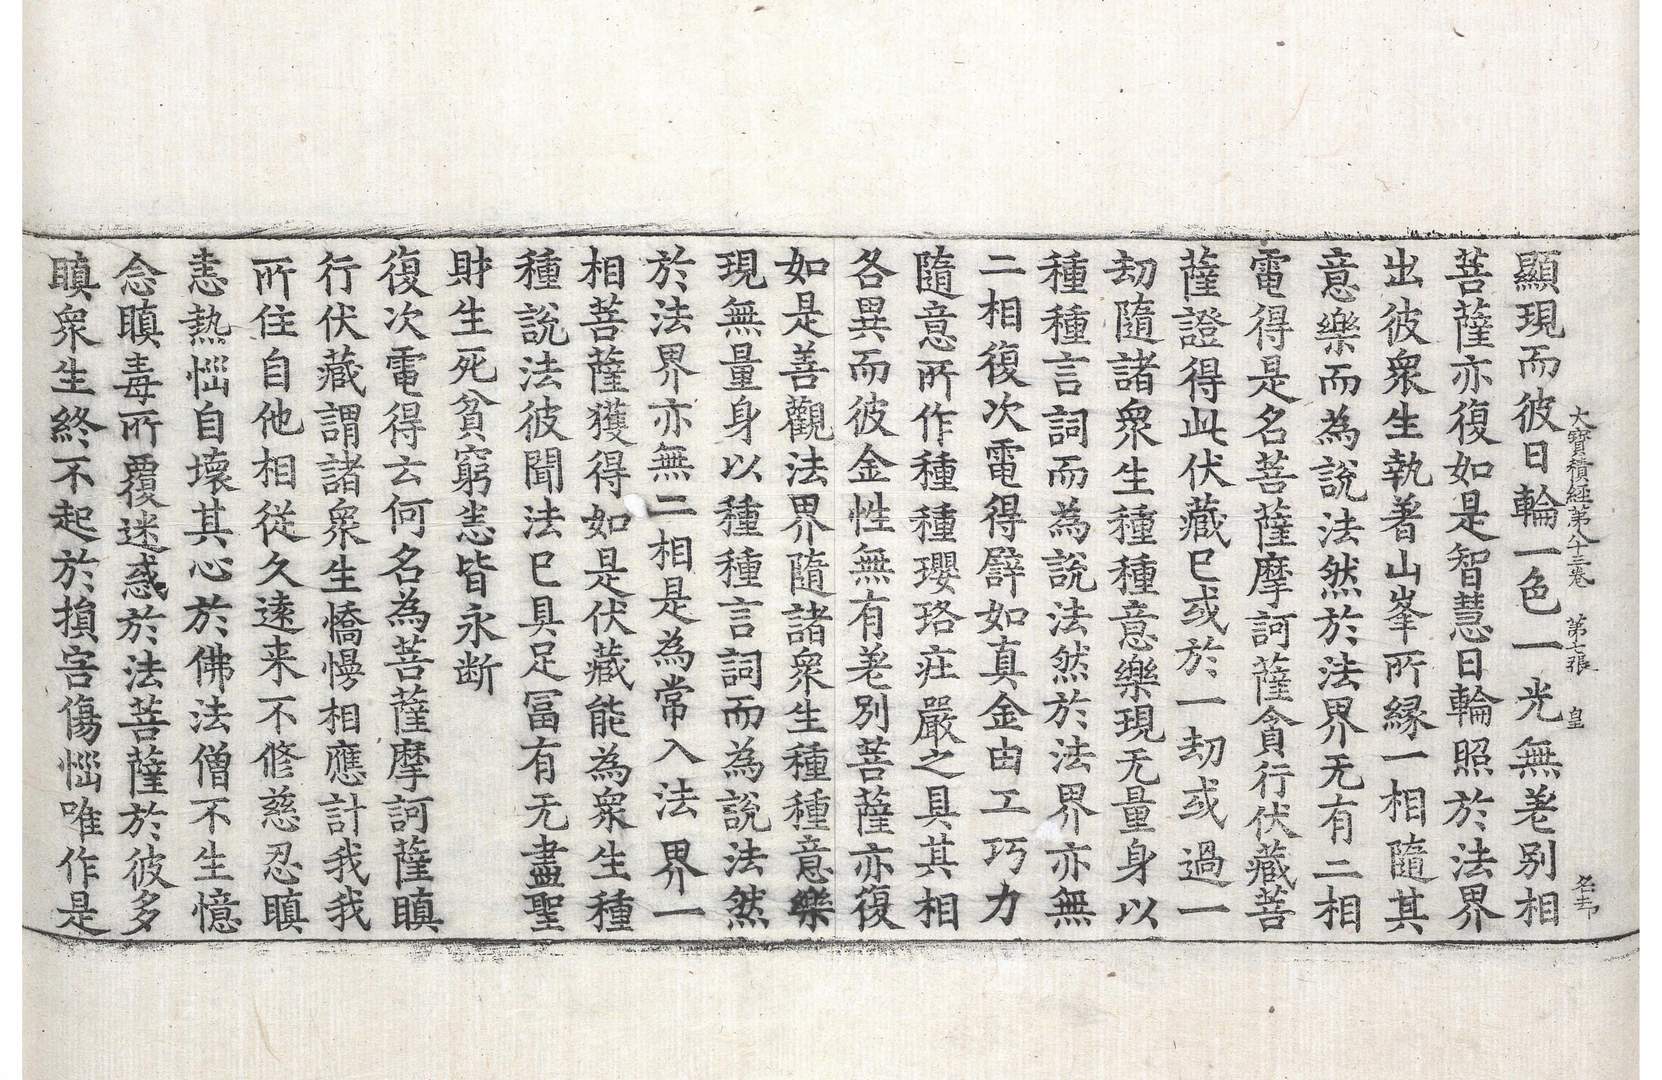 大寶積經第八十三卷　第七張　皇
顯現而彼日輪一色一光無差別相
菩薩亦復如是智慧日輪照於法界
出彼衆生執著山峯所緣一相隨其
意樂而為說法然於法界无有二相
電得是名菩薩摩訶薩貪行伏藏菩
薩證得此伏藏已或於一劫或過一
劫隨諸衆生種種意樂現无量身以
種種言詞而為說法然於法界亦無
二相復次電得譬如真金由工巧力
隨意所作種種瓔珞莊嚴之具其相
各異而彼金性無有差別菩薩亦復
如是善觀法界隨諸衆生種種意樂
現無量身以種種言詞而為說法然
於法界亦無二相是為常入法界一
相菩薩獲得如是伏藏能為衆生種
種說法彼聞法已具足冨有无盡聖
財生死貧窮恚皆永断
復次電得云何名為菩薩摩訶薩瞋
行伏藏謂諸衆生憍慢相應計我我
所住自他相從久遠来不修慈忍瞋
恚熱惱自壞其心於佛法僧不生憶
念瞋毒所覆迷惑於法菩薩於彼多
瞋衆生終不起於損害傷惱唯作是